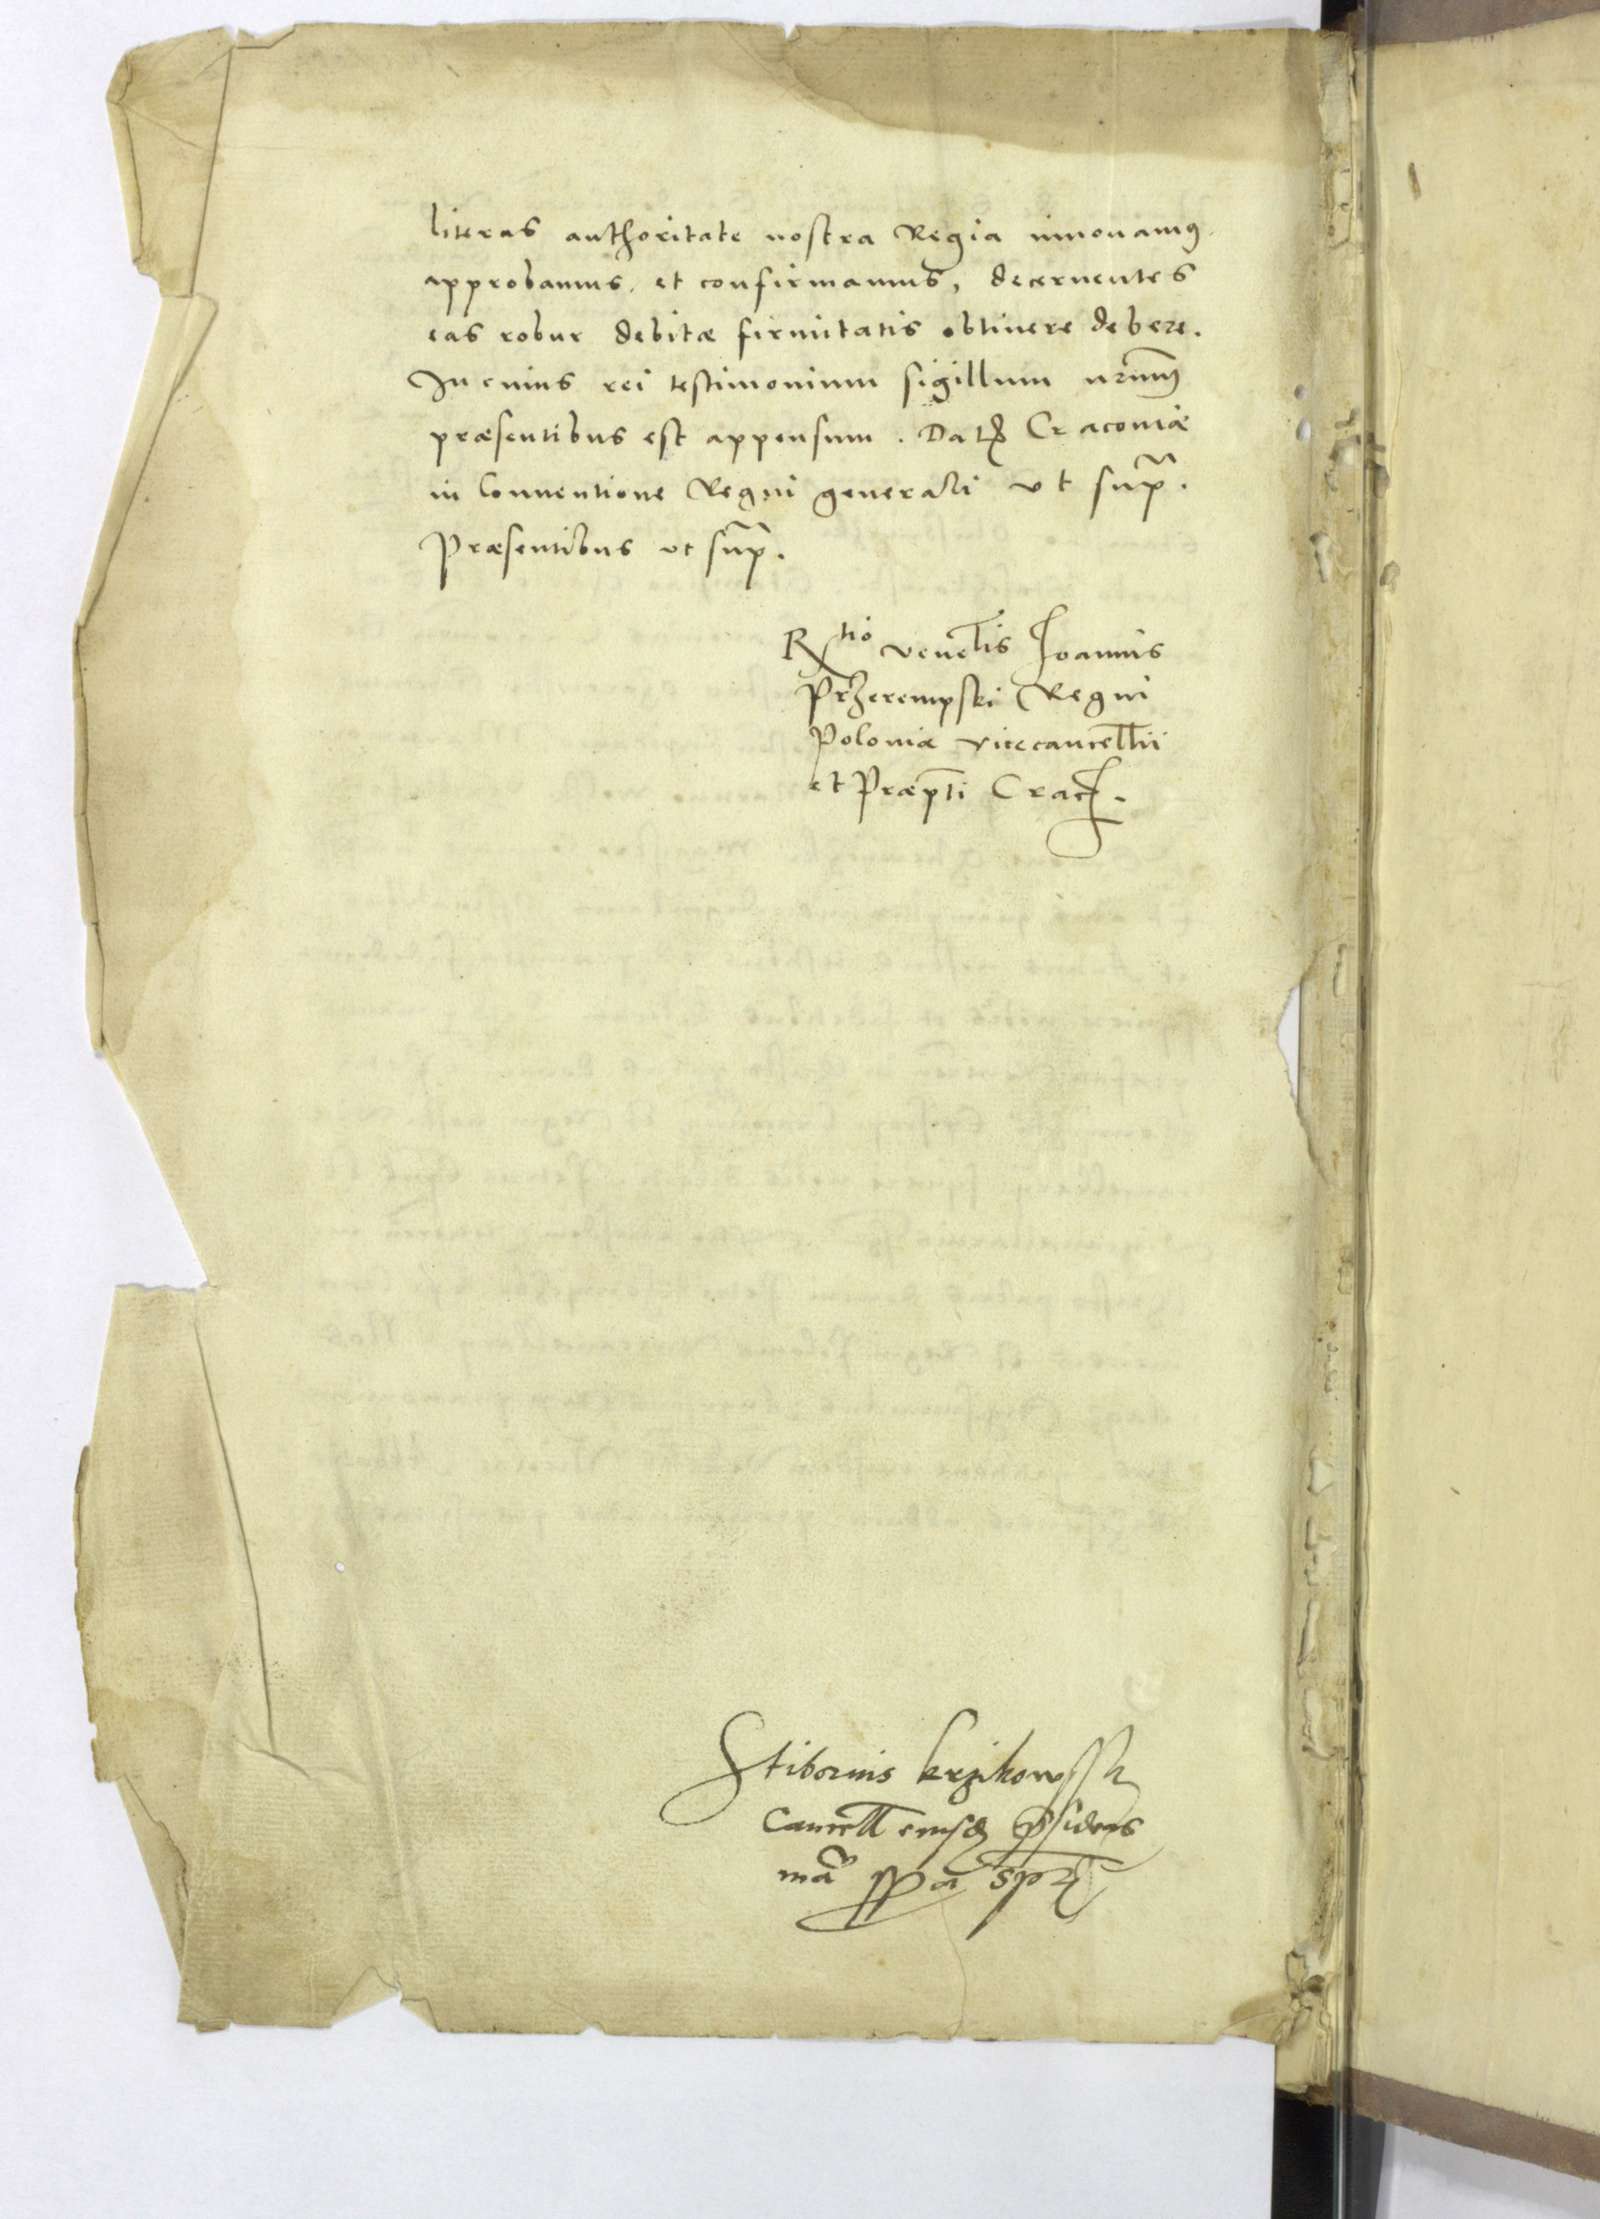 literas authoritate nostra Regia innovamus,
approbamus, et confirmamus, decernentes
eas robur debitæ firmitatis obtinere debere.
In cuius rei testimonium sigillum nr̃um
præsentibus est appensum. Dat Cracoviæ
in Conventione Regni generali ut sup̃.
Præsentibus ut sup̃.
Rtio venelis Joannis
Przerempski Regni
Poloniæ vicecancellii
et Præpti Crac.
Stiborius krzikowsk
Cancell eiusd psidens
mã ppa spt